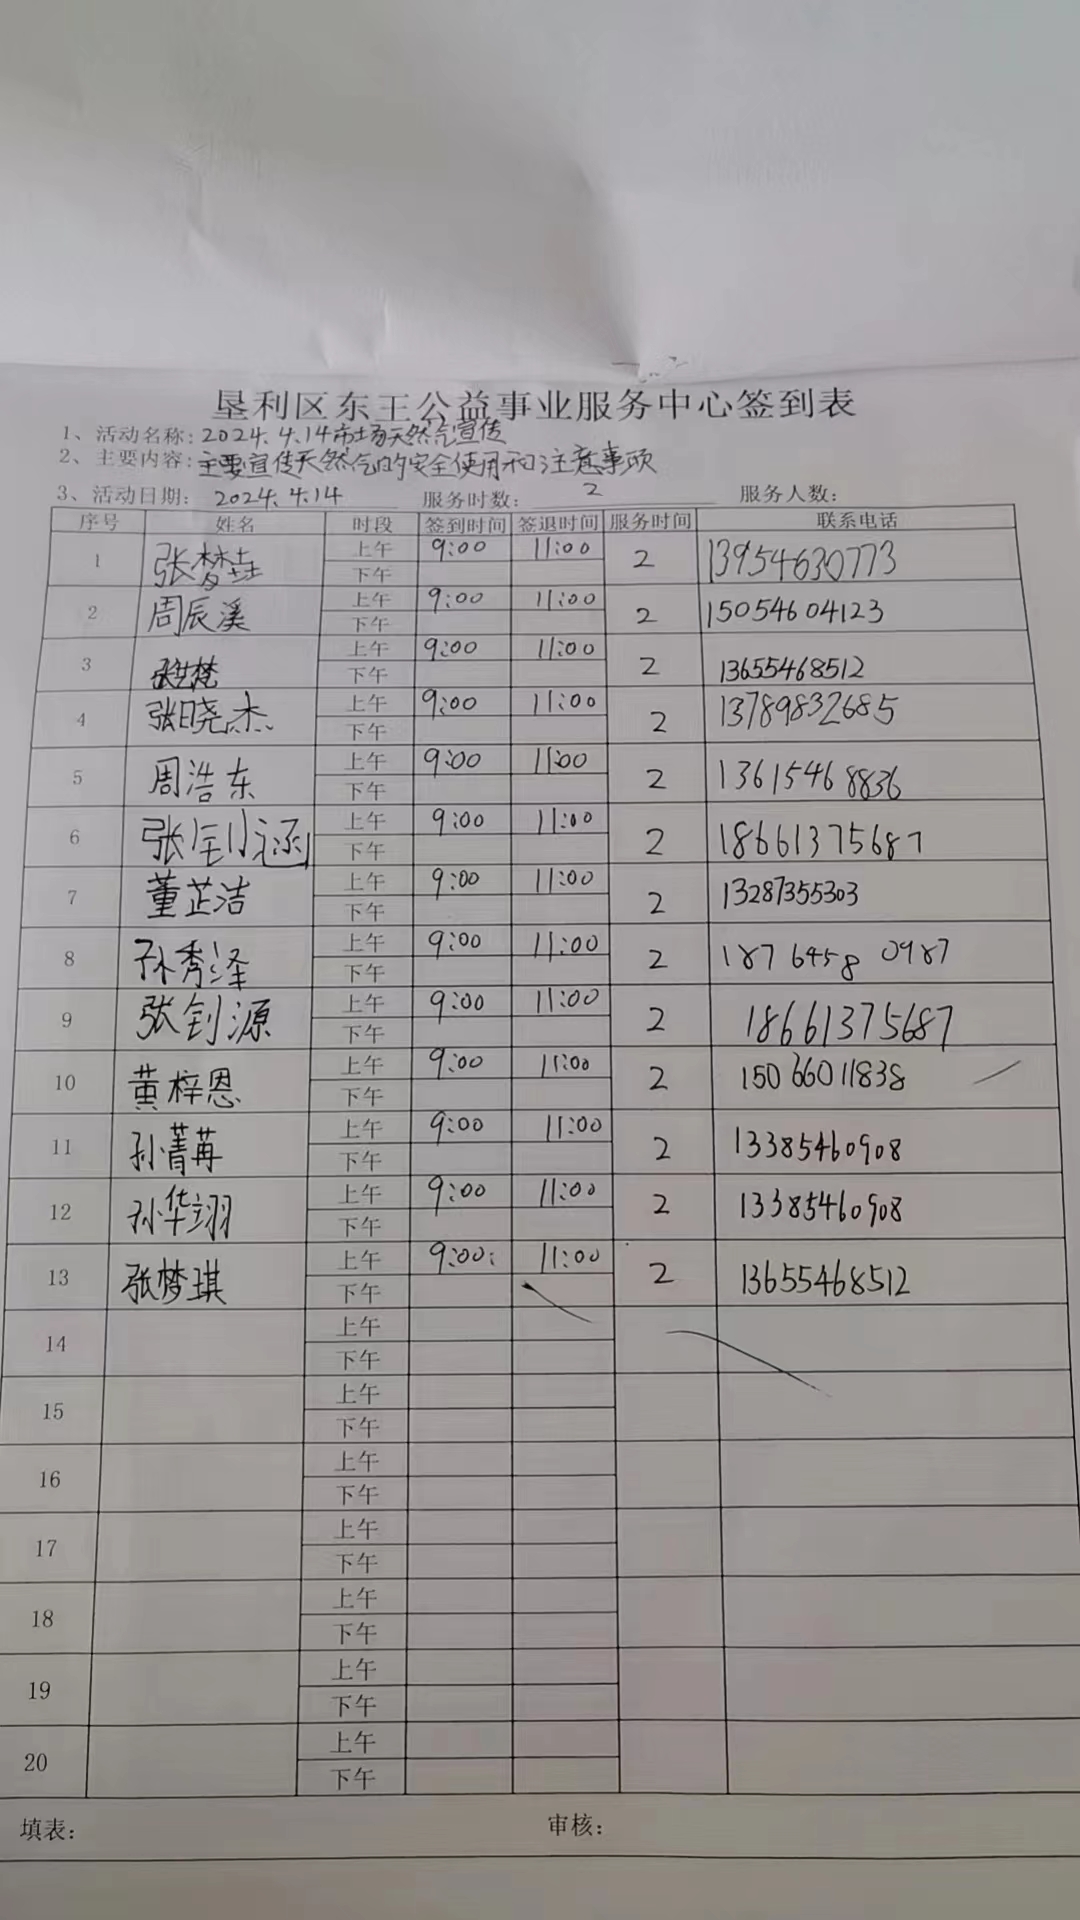 垦利区东王公益事业服务中心签到表
1、活动名称: 2024.4.14市场天然气宣传
2、主要内容: 主要宣传天然气的安全使用和注意事项
3、活动日期: 2024.4.14 服务时数: 2 服务人数:
序号 姓名 时段 签到时间 签退时间 服务时间 联系电话
1 张梦垚 上午 9:00 11:00 2 13954630773
下午
2 周辰溪 上午 9:00 11:00 2 15054604123
下午
3 上午 9:00 11:00 2 13655468512
下午
4 张晓杰 上午 9:00 11:00 2 13789832685
下午
5 周浩东 上午 9:00 11:00 2 13615468836
下午
6 张钊涵 上午 9:00 11:00 2 18661375687
下午
7 董芷洁 上午 9:00 11:00 2 13287355303
下午
8 孙秀泽 上午 9:00 11:00 2 187 6458 0987
下午
9 张钊源 上午 9:00 11:00 2 18661375687
下午
10 黄梓恩 上午 9:00 11:00 2 15066011838
下午
11 孙菁苒 上午 9:00 11:00 2 13385460908
下午
12 孙华翊 上午 9:00 11:00 2 13385460908
下午
13 张梦琪 上午 9:00: 11:00 2 13655468512
下午
14 上午
下午
15 上午
下午
16 上午
下午
17 上午
下午
18 上午
下午
19 上午
下午
20 上午
下午
填表: 审核: